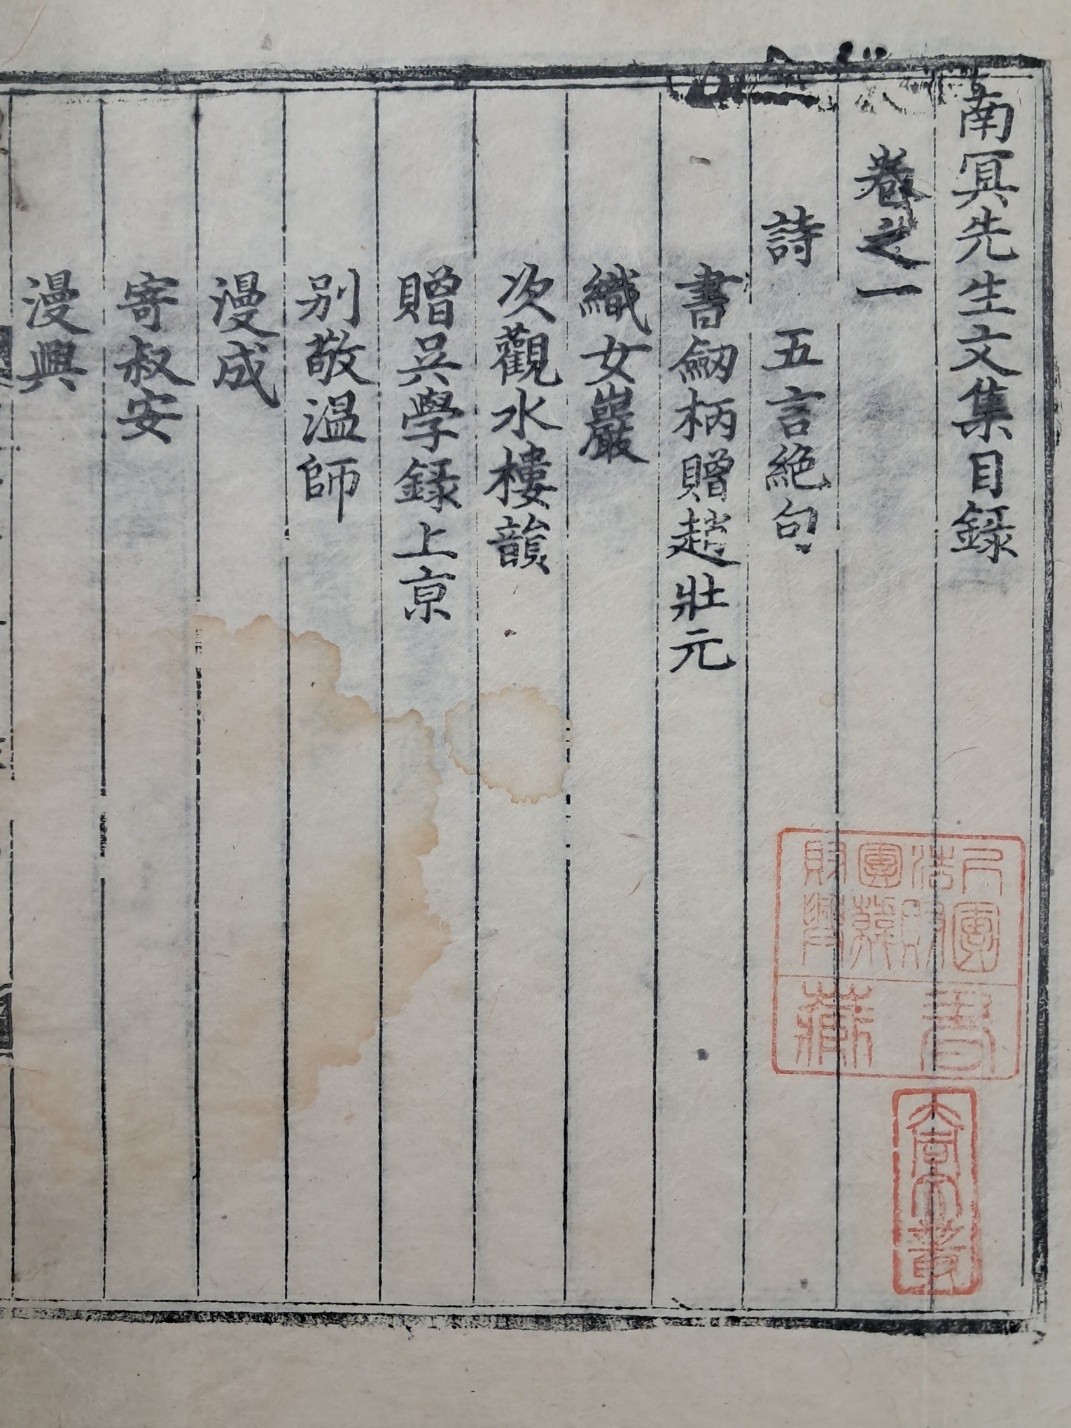 南冥先生文集目錄
卷之一
詩 五言絶句
書劒柄贈趙壯元
織女巖
次觀水樓韻
贈吳學錄上京
别敬温師
漫成
寄叔安
漫興